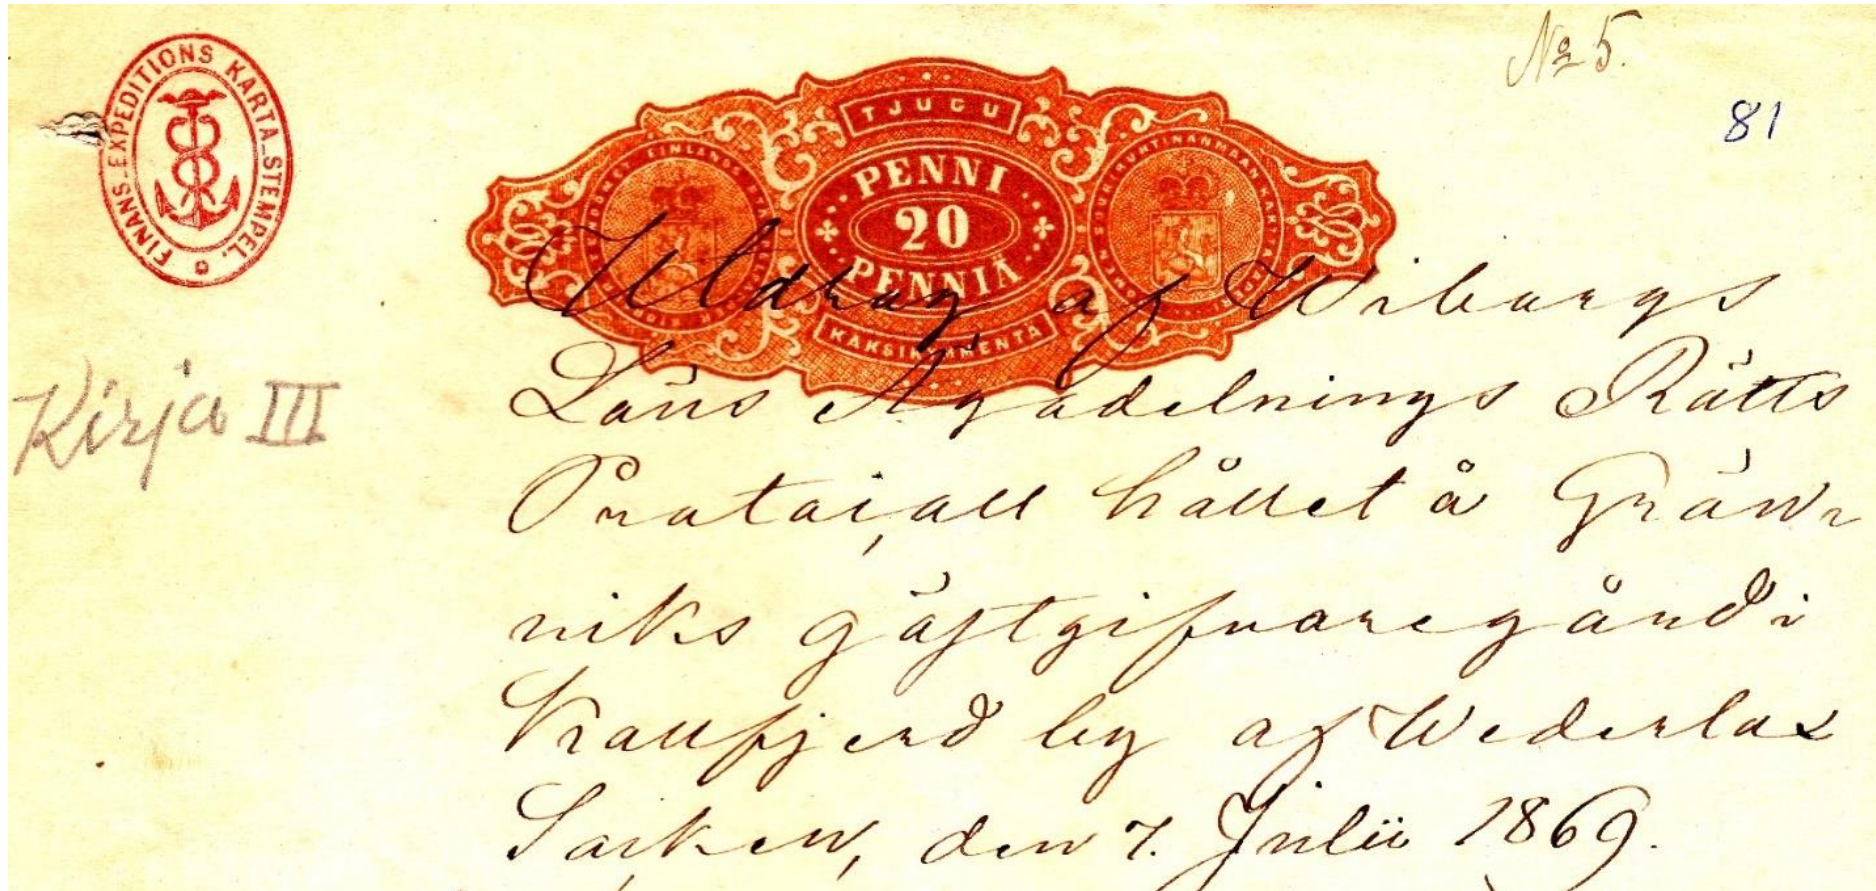 FINANS-EXPEDITIONS KARTA-STEMPEL.
№ 5.
81
TJUGU
PENNI
20
PENNIÄ
KAKSIKYMMENTÄ
Kirja III
Utdrag af Wiborgs
Läns Ägodelnings Rätts
Protocoll hållet å Gränn
viks gästgifvaregård i
Kallfjerd by af Wederlax
Socken, den 7. Julii 1869.